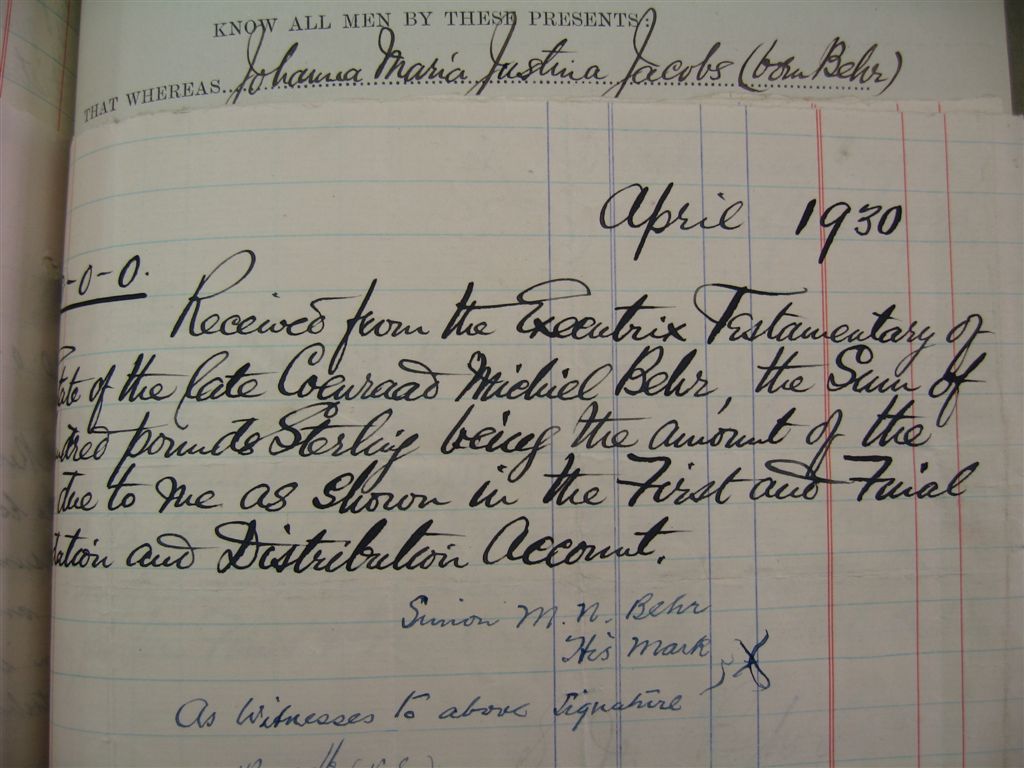 KNOW ALL MEN BY THESE PRESENTS:
THAT WHEREAS Johanna Maria Justina Jacobs (born Behr)
April 1930
-0-0.
Received from the Executrix Testamentary of
tate of the late Coenraad Michiel Behr, the Sum of
dred pounds Sterling being the amount of the
due to me as shown in the First and Final
dation and Distribution Account.
Simon M. N. Behr
His Mark X
As Witnesses to above Signature